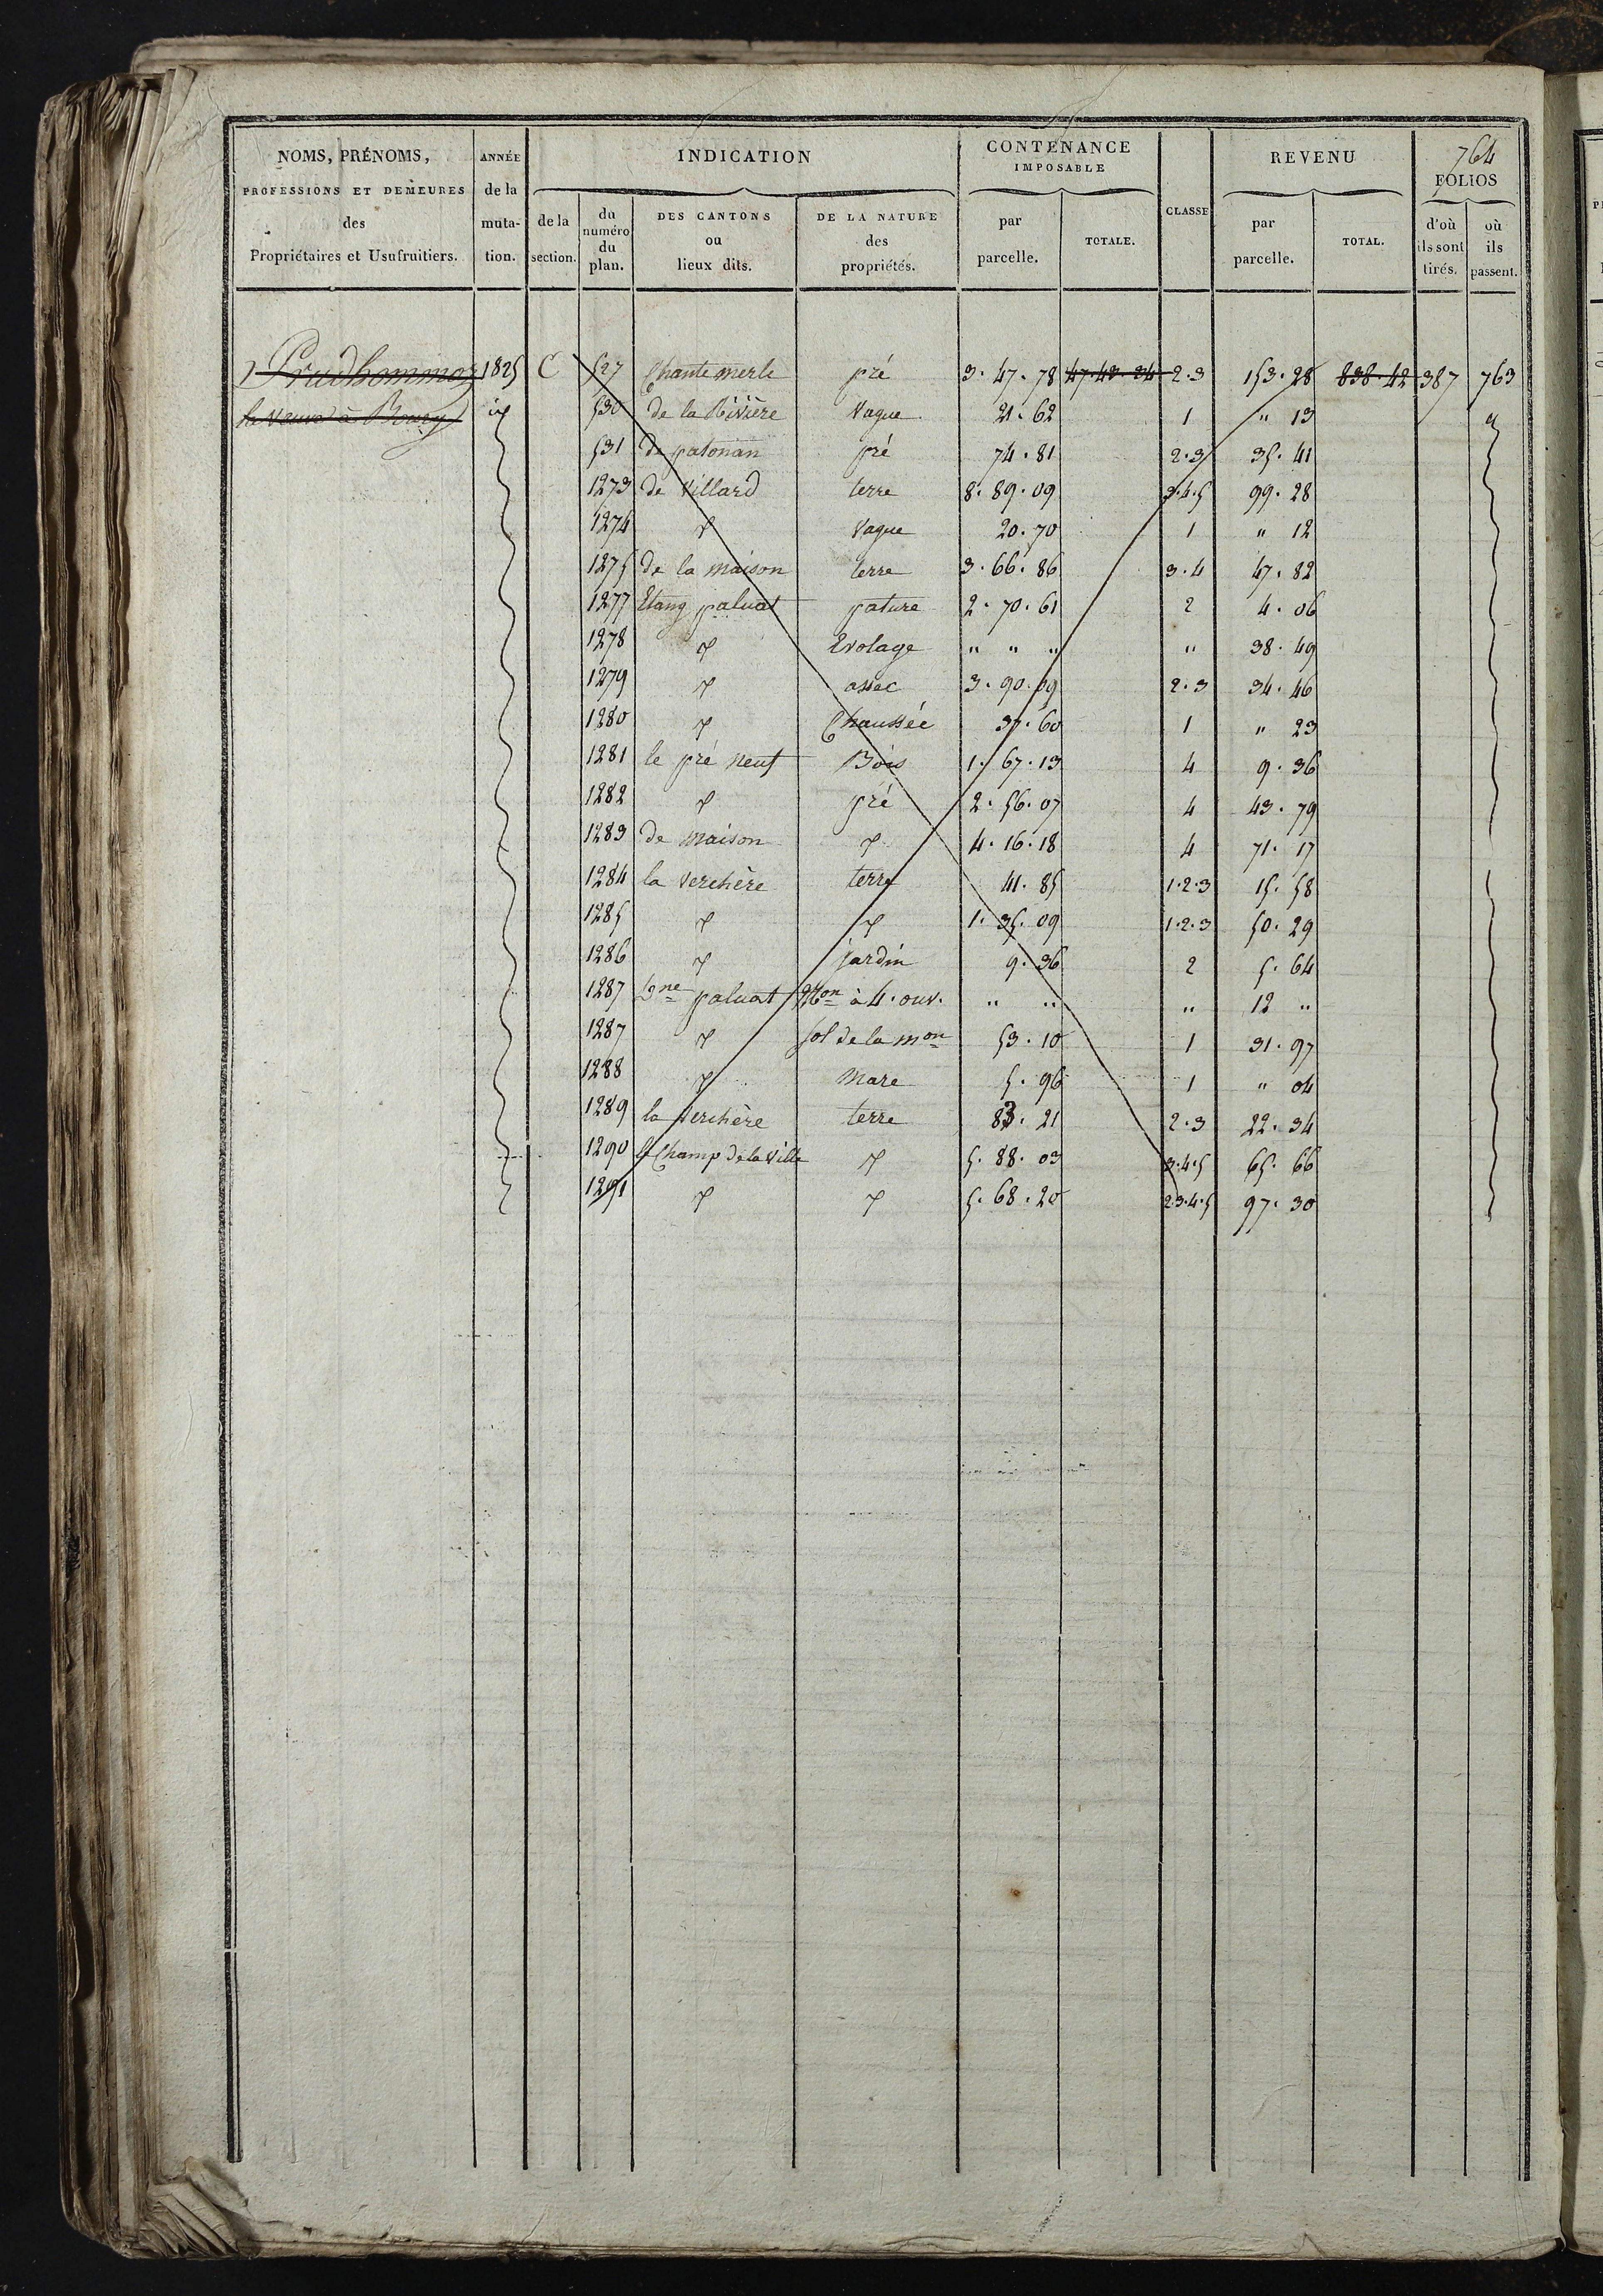 764
NOMS, PRÉNOMS, PROFESSIONS ET DEMEURES des Propriétaires et Usufruitiers.
ANNÉE de la muta- tion.
INDICATION
de la section.
du numéro du plan.
DES CANTONS ou lieux dits.
DE LA NATURE des propriétés.
CONTENANCE IMPOSABLE
par parcelle.
TOTALE.
CLASSE
REVENU
par parcelle.
TOTAL.
FOLIOS
d'où ils sont tirés.
où ils passent.
Prudhommoz 1825 C 527 Chante merle pré 3. 47. 78 47. 43. 34 2.3 153. 28 838. 42 387 763
la veuve à Bourg 530 de la Rivière Vague 21. 62 1 " 13
531 de patonan pré 74. 81 2.3 35. 41
1273 de Villard terre 8. 89. 09 3.4.5 99. 28
1274 Vague 20. 70 1 " 12
1275 de la maison terre 3. 66. 86 3.4 47. 82
1277 Etang paluat pature 2. 70. 61 2 4. 06
1278 Evolage " " " " 38. 49
1279 assec 3. 90. 09 2.3 34. 46
1280 Chaussée 37. 60 1 " 23
1281 le pré neuf Bois 1. 67. 13 4 9. 36
1282 pré 2. 56. 07 4 43. 79
1283 de maison 4. 16. 18 4 71. 17
1284 la Verchère terre 41. 85 1.2.3 15. 58
1285 1. 35. 09 1.2.3 50. 29
1286 jardin 9. 36 2 5. 64
1287 Dne paluat Mon à 4. ouv. " " " 12 "
1287 sol de la mon 53. 10 1 31. 97
1288 Mare 5. 96 1 " 04
1289 la Verchère terre 83. 21 2.3 22. 34
1290 le Champ de la Ville 5. 88. 03 3.4.5 65. 66
1291 5. 68. 20 2.3.4.5 97. 30